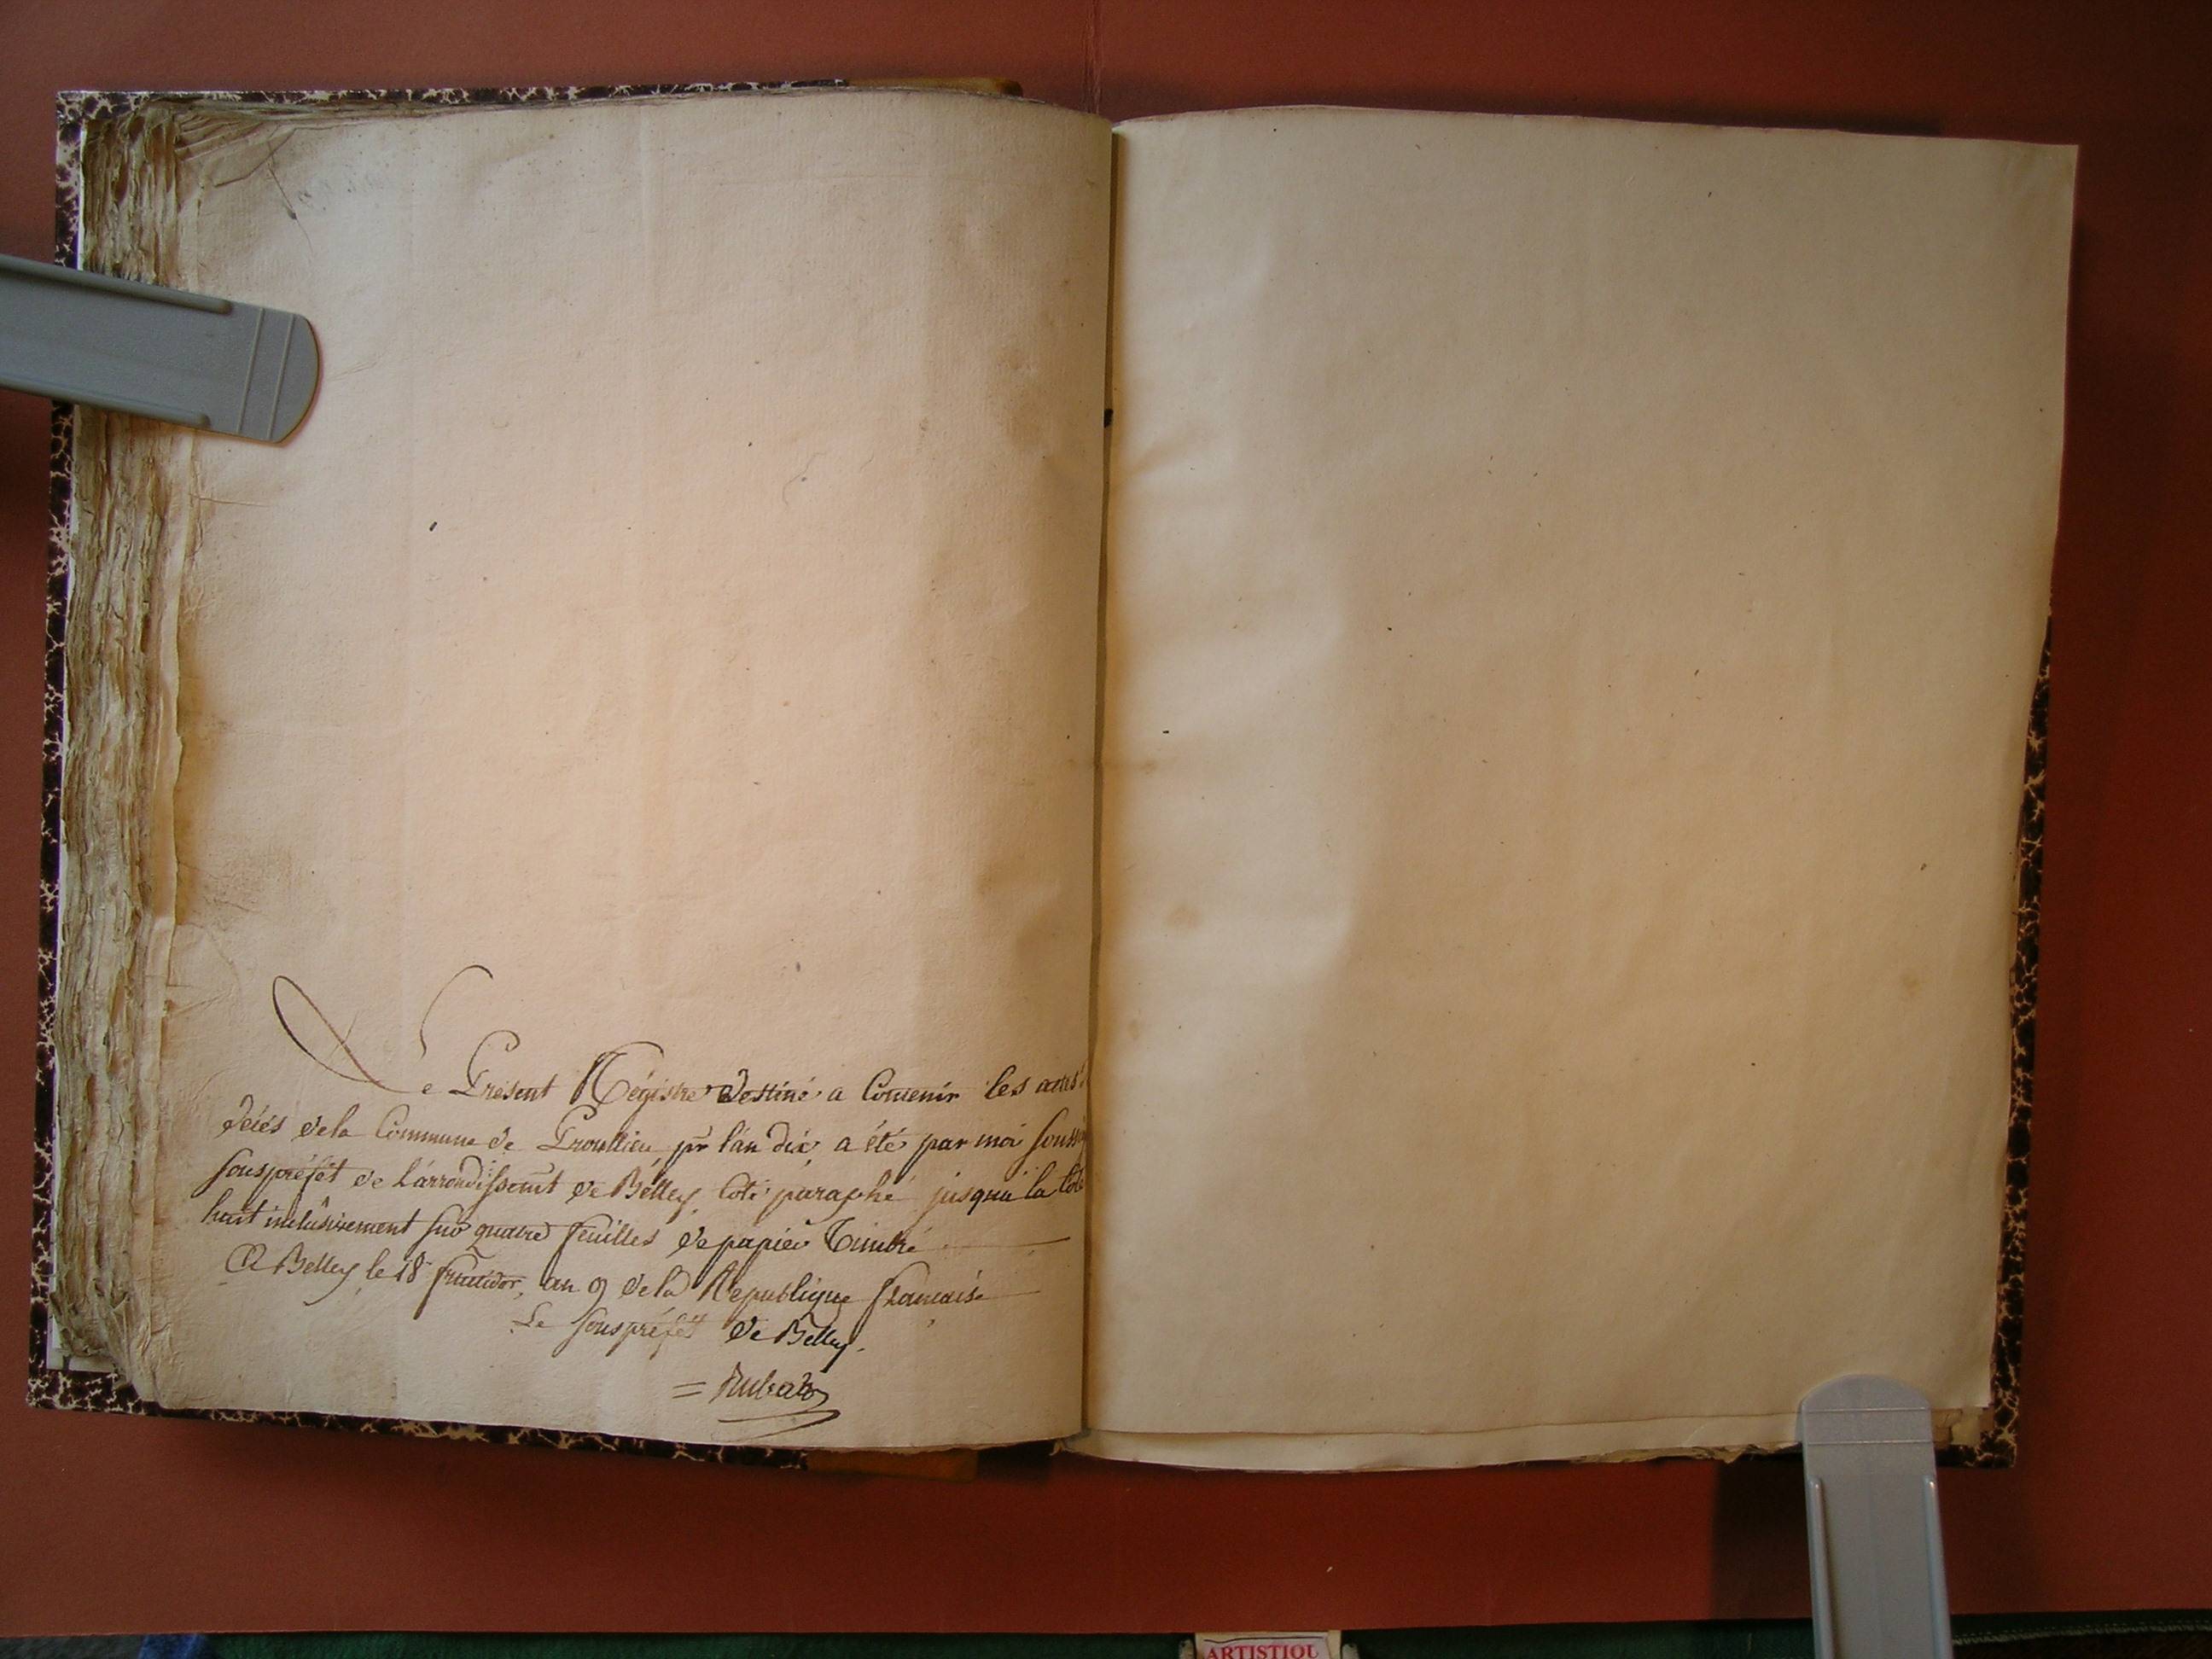 Le Présent Régistre destiné a Contenir les actes
décés de la Commune de Proullieu, pr l'an dix, a été par moi souss
souspréfét de l'arrondissemt de Bélley, Coté paraphé jusqu'a la Cote
huit inclusivement sur quatre feuilles de papier Timbré
A Belley le 18 fructidor, an 9 de la République francaise
Le souspréfét de Belley.
= Rubat
ARTISTIQU